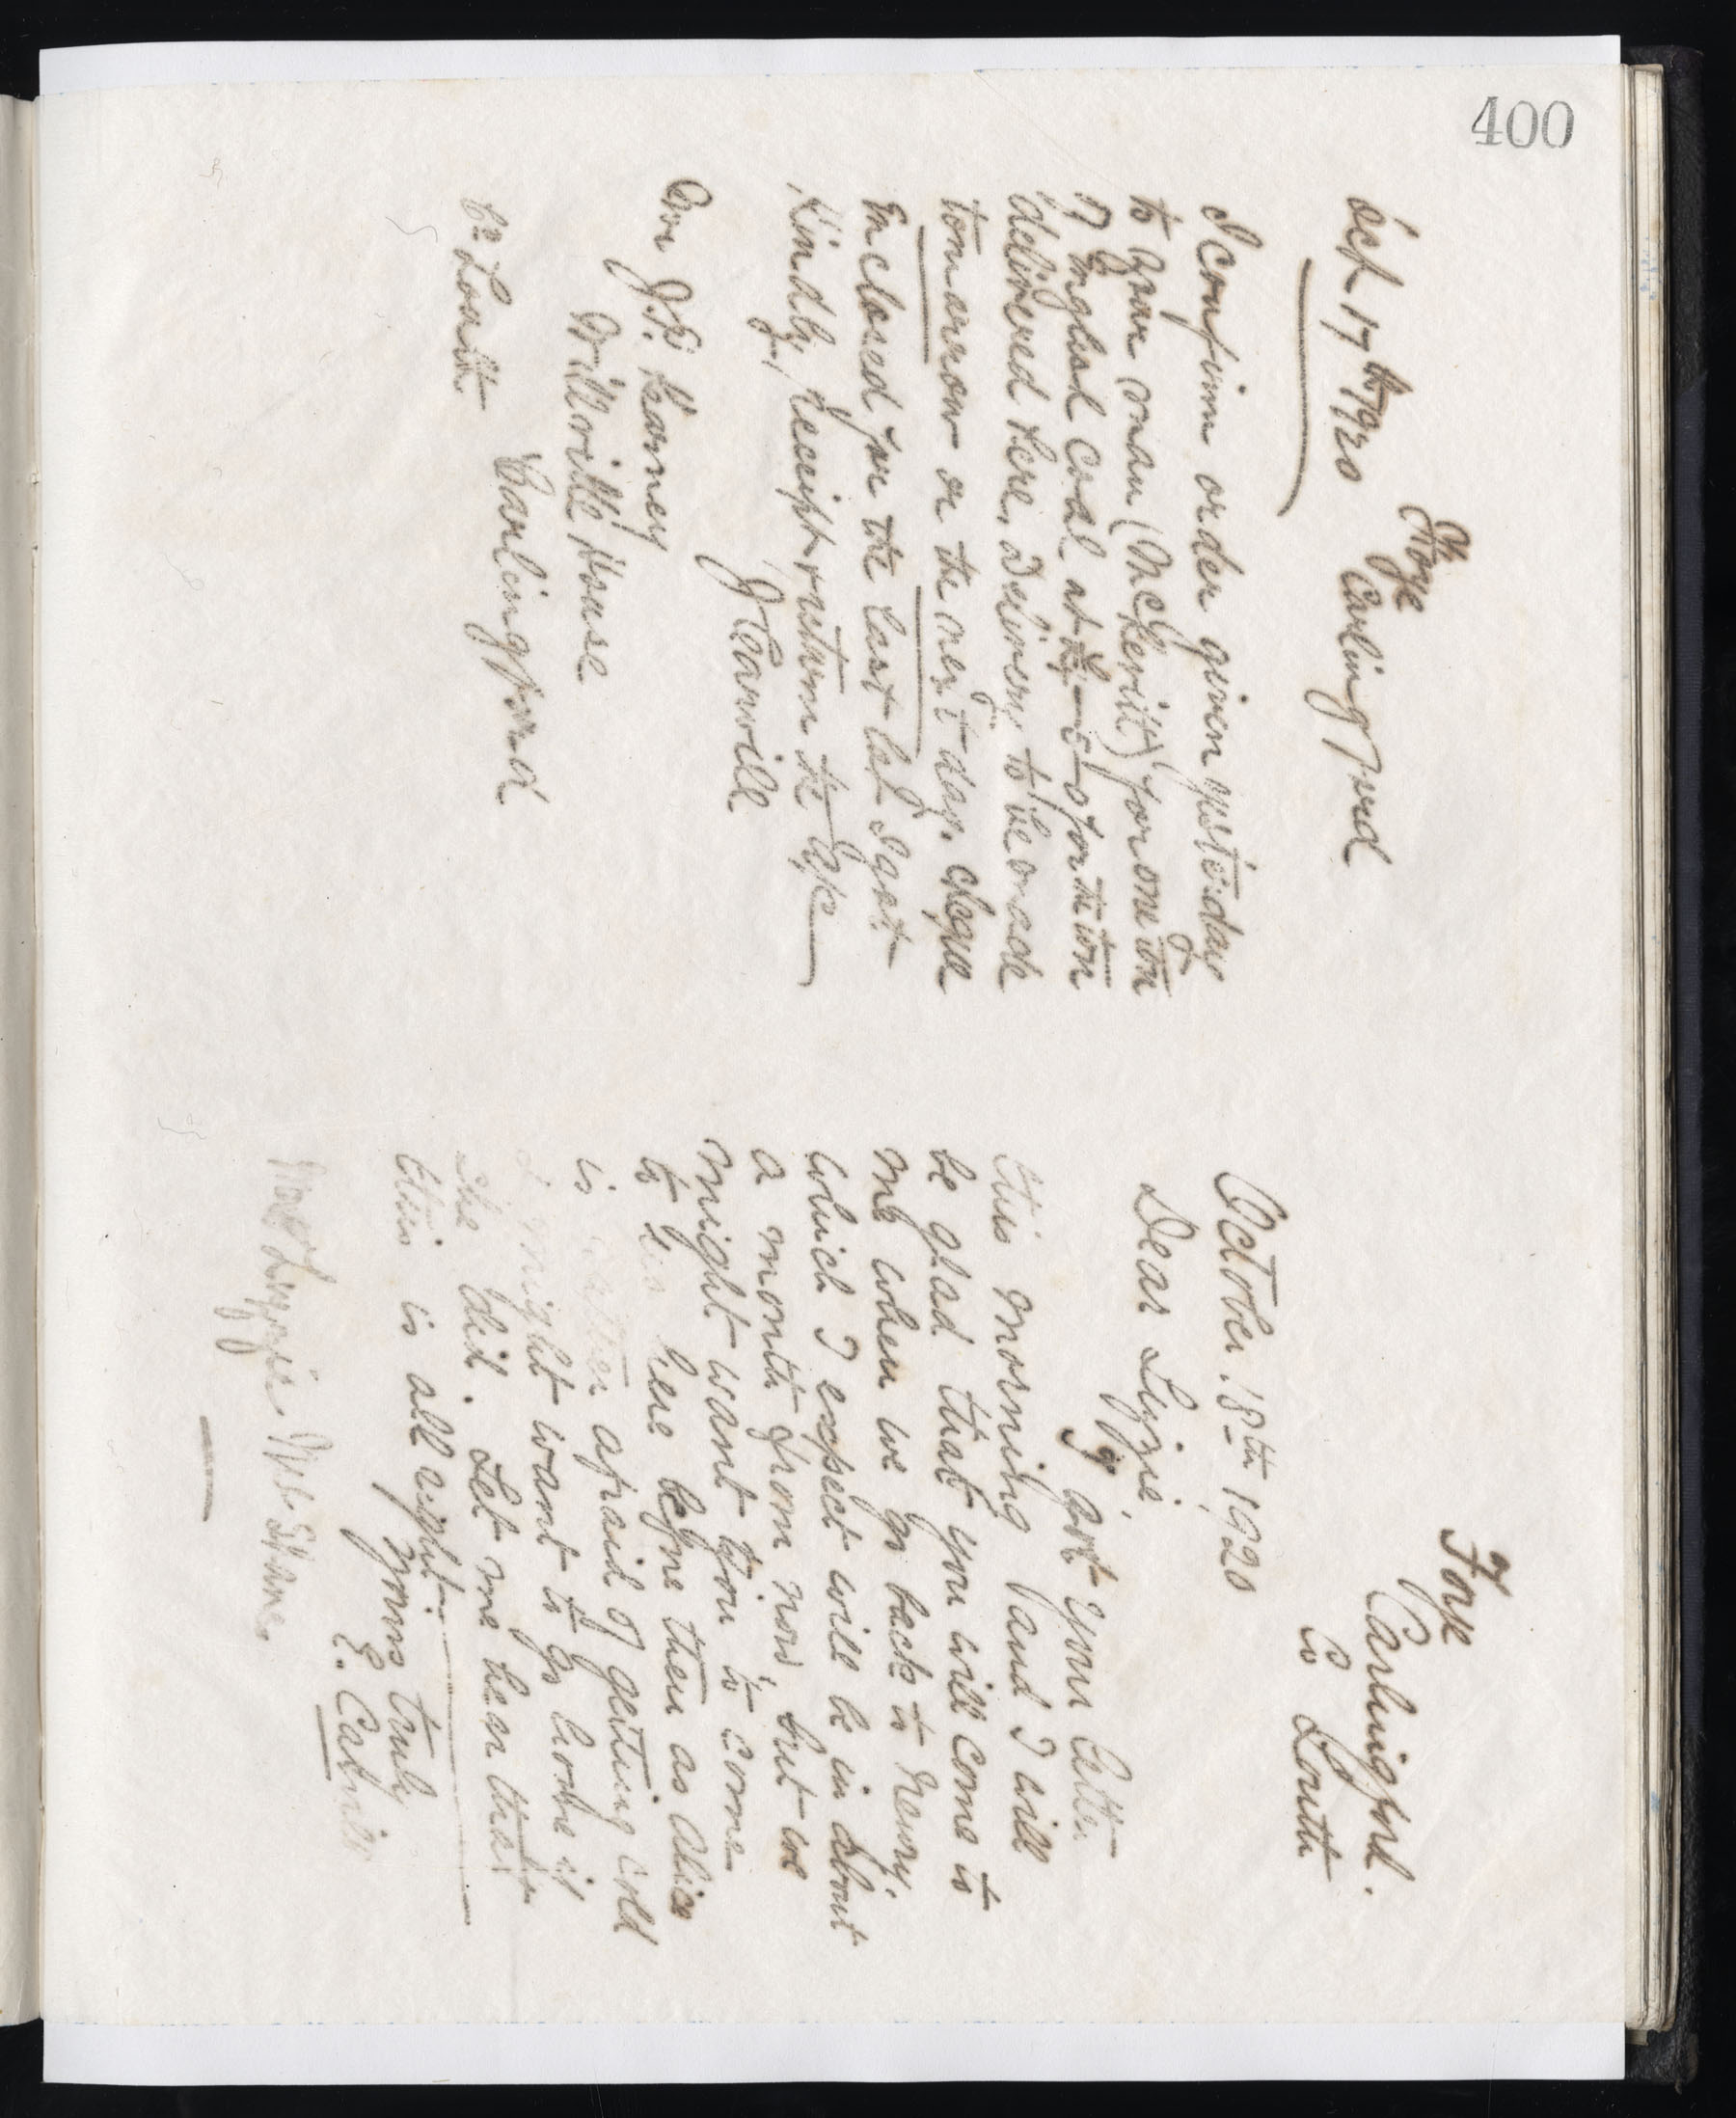 400
Foye
Carlingford
Oct 17th 1920
I confirm order given yesterday
to your man (McKevitt) for one ton
of English Coal at for the ton
delivered here, Delivery to be made
tomorrow or the next day. cheque
Enclosed for the last lot I got
Kindly receipt return the
J Carvill
Mr J.P. Kearney
Millville House
Carlingford
Co Louth
Foye
Carlingford.
Co Louth
October 18th 1920
Dear Lizzie,
I got your letter
this morning and I will
be glad that you will come to
me when we go back to Newry.
which I expect will be in about
a month from now, but we
might want you to come
to us here before then as Alice
is rather afraid of getting cold
& might want to go home if
she did. Let me hear that
this is all right.
yours truly
E. Carvill
Lizzie McShane.